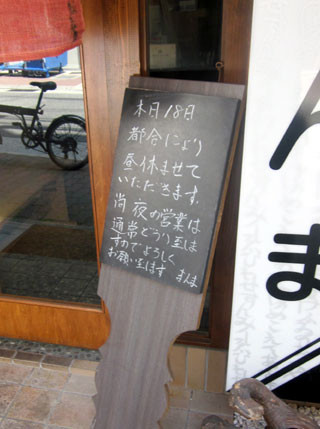 本日18日
都合により
昼休ませて
いただきます.
尚夜の営業は
通常どうり至しま
すのでよろしく
お願い至します さんま
ん
ま